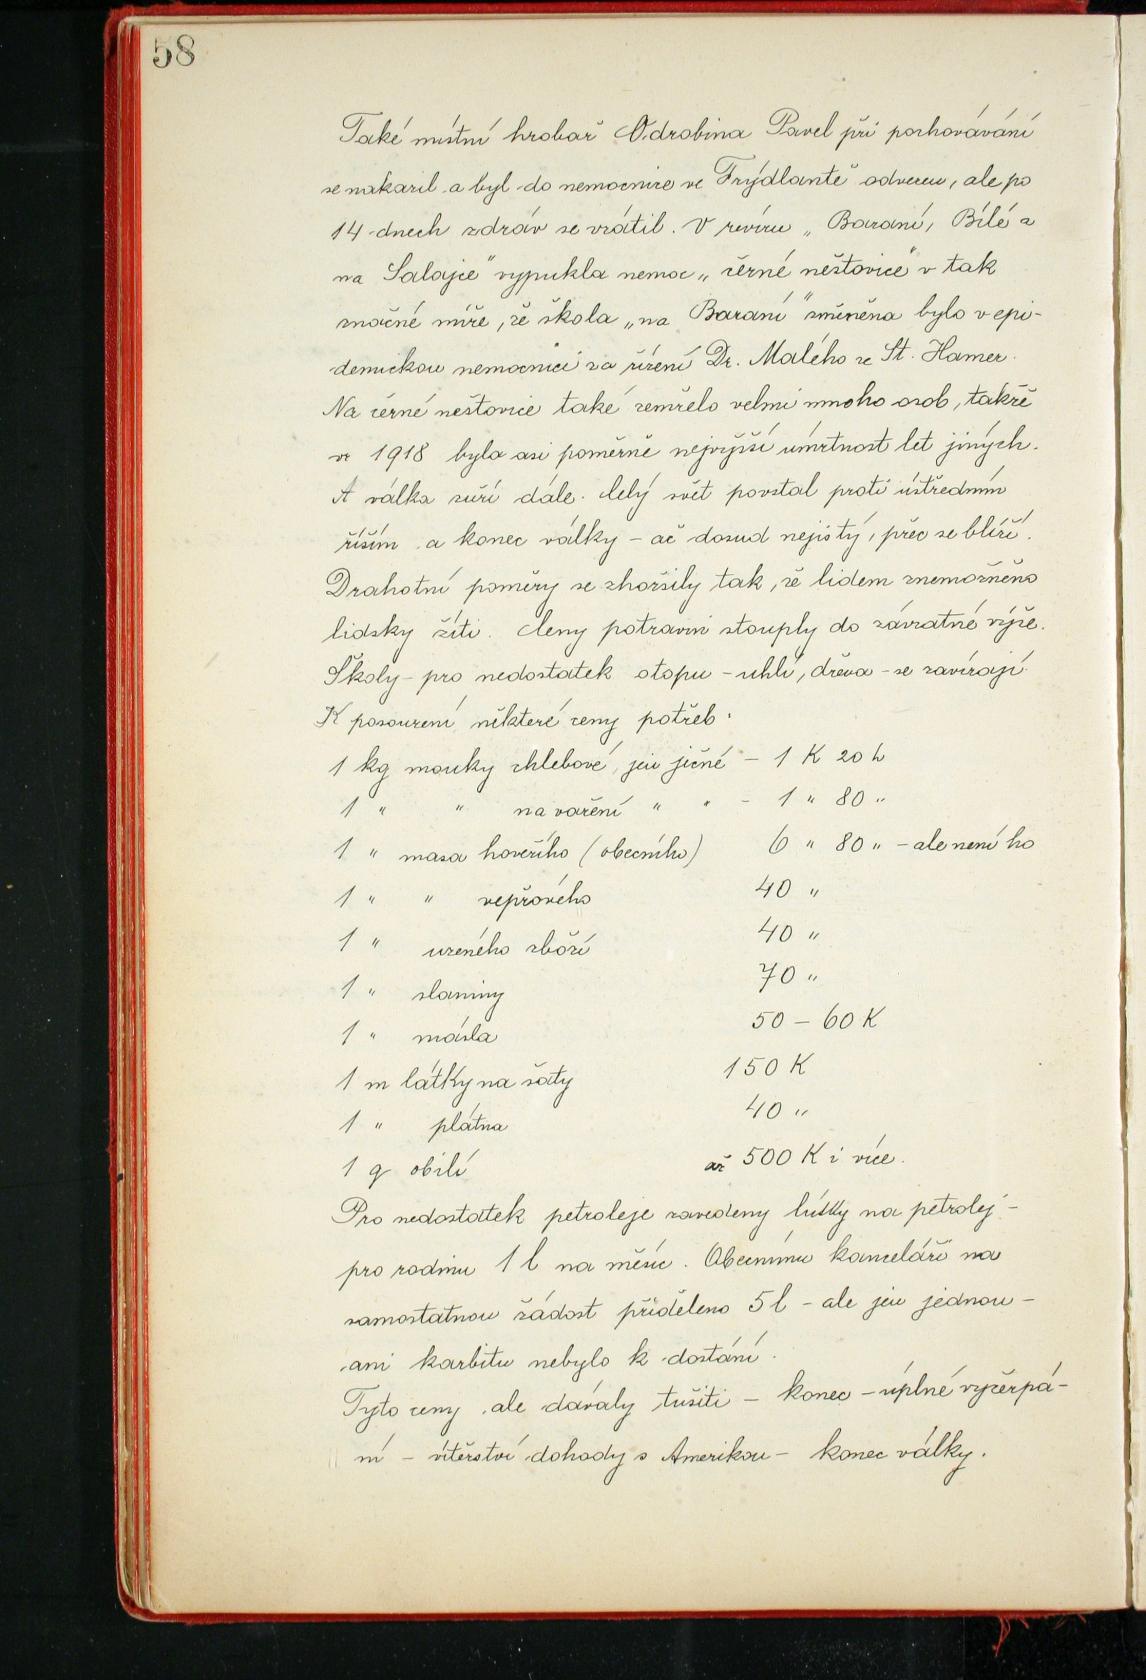 58
Také místní hrobař Odrobina Pavel při pochovávání
se nakazil a byl do nemocnice ve Frýdlantě odvezen, ale po
14 dnech zdráv se vrátil. V revíru „Baraní, Bílé a
na Salajce" vypukla nemoc „černé neštovice" v tak
značné míře, že škola „na Baraní" změněna bylo v epi-
demickou nemocnici za řízení Dr. Malého ze St. Hamer.
Na černé neštovice také zemřelo velmi mnoho osob, takže
v r 1918 byla asi poměrně nejvyšší úmrtnost let jiných.
A válka zuří dále. Celý svět povstal proti ústředním
říším a konec války – ač dosud nejistý, přec se blíží.
Drahotní poměry se zhoršily tak, že lidem znemožněno
lidsky žíti. Ceny potravin stouply do závratné výše.
Školy – pro nedostatek otopu – uhlí, dřeva – se zavírají
K posouzení některé ceny potřeb:
1 kg mouky chlebové, jen ječné – 1 K 20 h
1 " " na vaření " " – 1 " 80 "
1 " masa hovězího (obecního) 6 " 80 " – ale není ho
1 " " vepřového 40 "
1 " uzeného zboží 40 "
1 " slaniny 70 "
1 " másla 50 – 60 K
1 m látky na šaty 150 K
1 " plátna 40 "
1 q obilí až 500 K i více.
Pro nedostatek petroleje zavedeny lístky na petrolej –
pro rodinu 1 l na měsíc. Obecnímu kanceláři na
samostatnou žádost přiděleno 5 l – ale jen jednou –
ani karbitu nebylo k dostání.
Tyto ceny ale dávaly tušiti – konec – úplné vyčerpá-
ní – vítězství dohody s Amerikou – konec války.